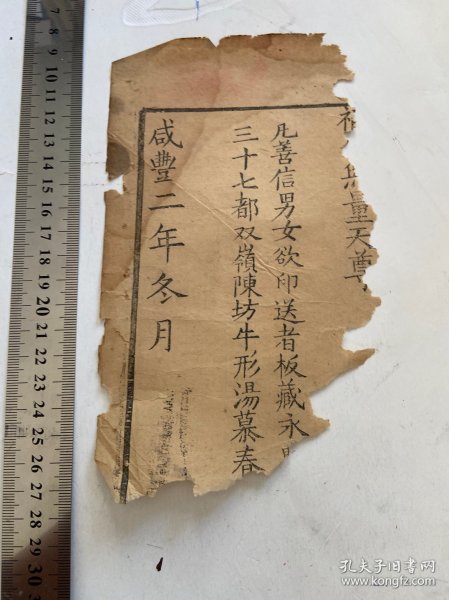 無量天尊
凡善信男女欲印送者板藏永
三十七都双嶺陳坊牛形湯慕春
咸豐二年冬月
7
8
9
10
11
12
13
14
15
16
17
18
19
20
21
22
23
24
25
26
27
28
29
30
孔夫子旧书网
www.kongfz.com